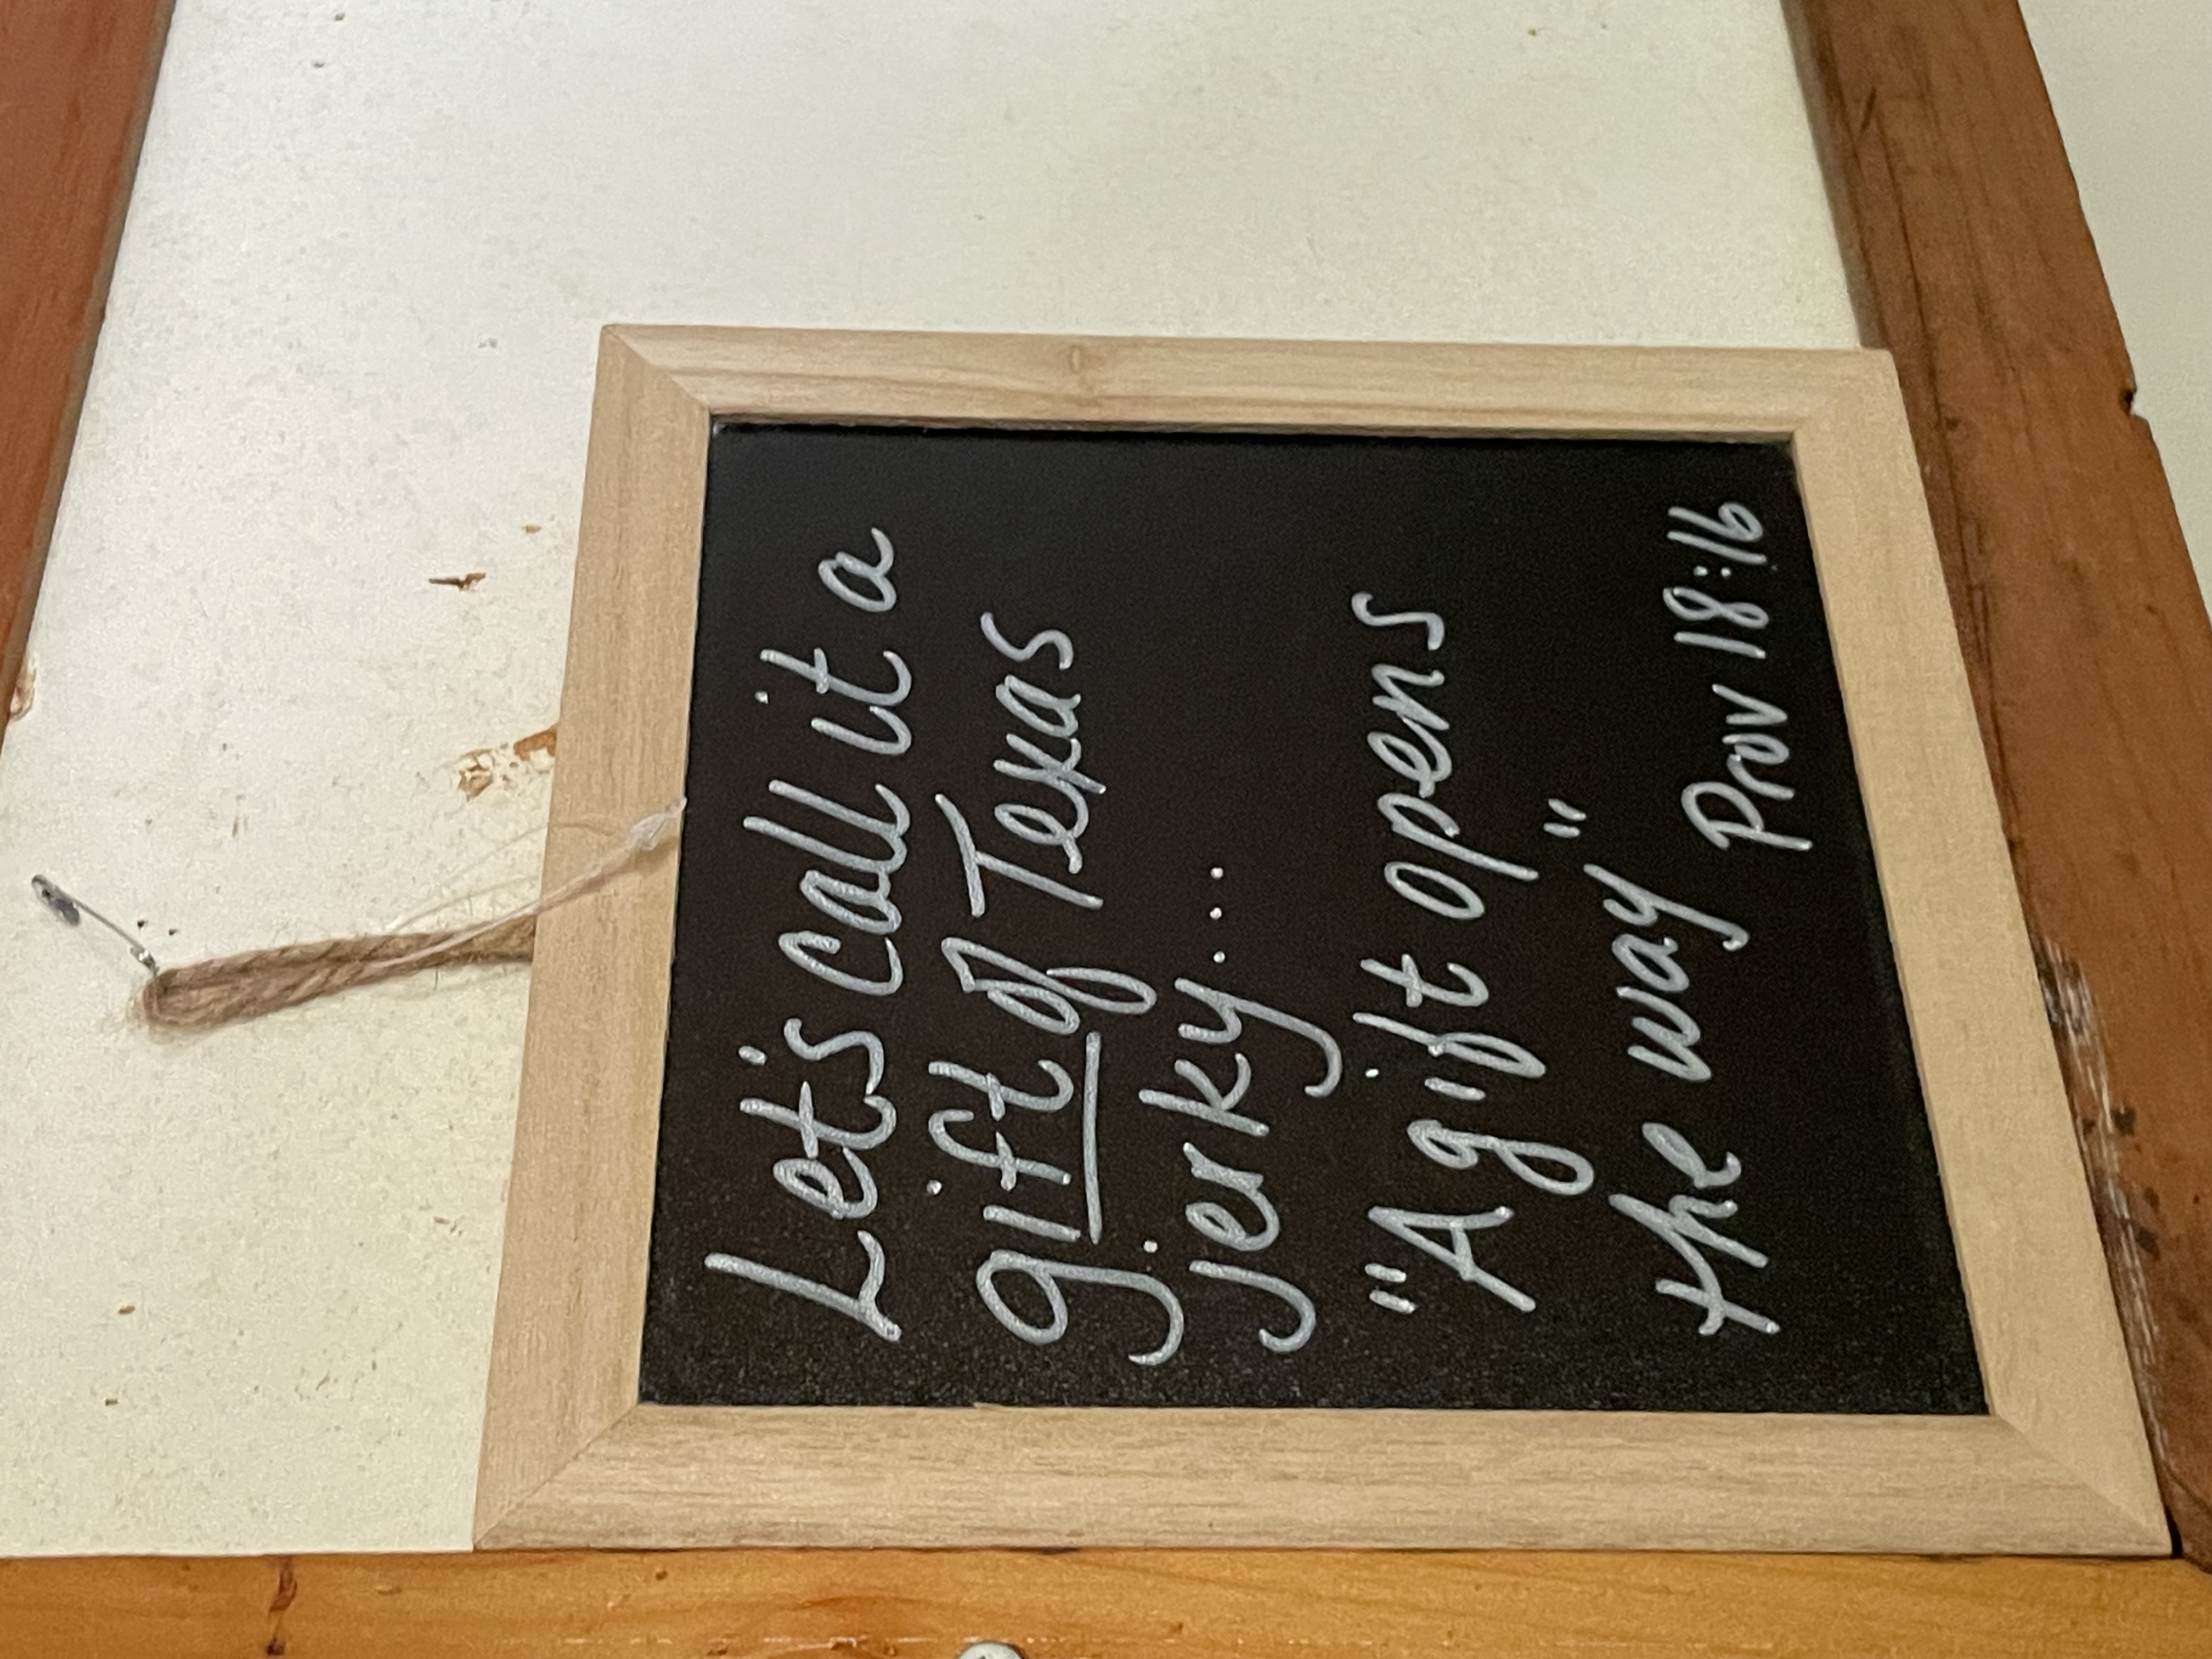 Let's call it a
gift of Texas
jerky...
"A gift opens
the way"
Prov 18:16